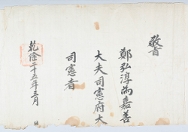 敎旨
鄭弘淳爲嘉善
大夫司憲府大
司憲者
乾隆二十三年三月